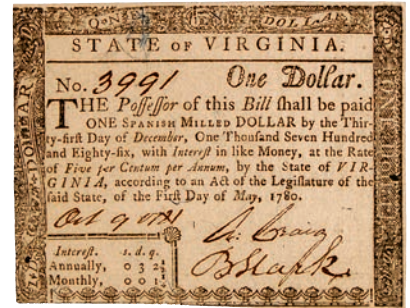 ONE DOLLAR
STATE OF VIRGINIA.
No. 3991 One Dollar.
THE Poſſeſſor of this Bill ſhall be paid
ONE SPANISH MILLED DOLLAR by the Thir-
ty-firſt Day of December, One Thouſand Seven Hundred
and Eighty-ſix, with Intereſt in like Money, at the Rate
of Five per Centum per Annum, by the State of VIR-
GINIA, according to an Act of the Legiſlature of the
ſaid State, of the Firſt Day of May, 1780.
Intereſt. s. d. q.
Annually, 0 3 2½
Monthly, 0 0 1
DOLLAR